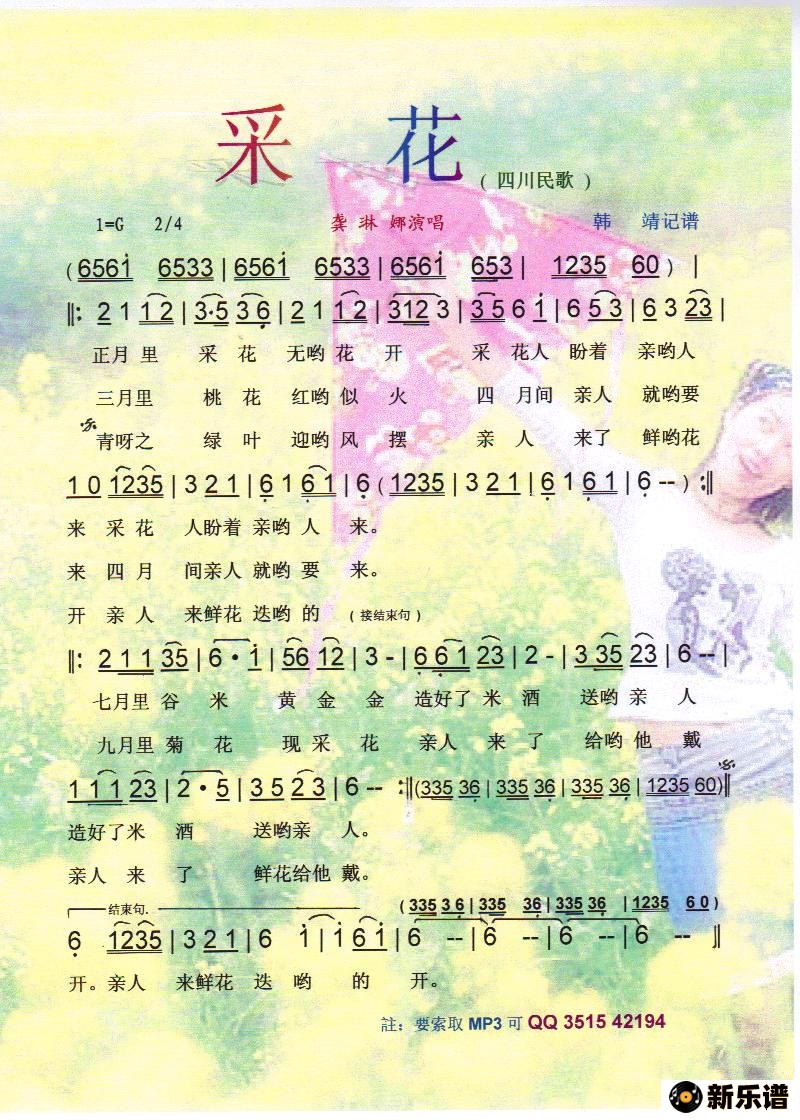 采 花
( 四川民歌 )
1=G 2/4 龚 琳 娜演唱 韩 靖记谱
( 6561 6533 | 6561 6533 | 6561 653 | 1235 60 ) |
‖: 2 1 1 2 | 3·5 3 6 | 2 1 1 2 | 312 3 | 3 5 6 1 | 6 5 3 | 6 3 23 |
正月 里 采 花 无哟 花 开 采 花人 盼着 亲哟人
三月里 桃 花 红哟 似 火 四 月间 亲人 就哟要
青呀之 绿 叶 迎哟 风 摆 亲 人 来了 鲜哟花
1 0 1235 | 3 2 1 | 6 1 6 1 | 6 ( 1235 | 3 2 1 | 6 1 6 1 | 6 -- ) :‖
来 采 花 人盼着 亲哟 人 来。
来 四 月 间亲人 就哟 要 来。
开 亲 人 来鲜花 迭哟 的 ( 接结束句 )
‖: 2 1 1 35 | 6 · 1 | 56 12 | 3 - | 6 6 1 23 | 2 - | 3 35 23 | 6 -- |
七月里 谷 米 黄 金 金 造好了 米 酒 送哟 亲 人
九月里 菊 花 现 采 花 亲人 来 了 给哟 他 戴
1 1 1 23 | 2 · 5 | 3 5 2 3 | 6 -- :‖ (335 36 | 335 36 | 335 36 | 1235 60) ‖
造好了 米 酒 送哟亲 人。
亲人 来 了 鲜花给他 戴。
结束句. ( 335 3 6 | 335 36 | 335 36 | 1235 6 0 )
6 1235 | 3 21 | 6 1 | 1 6 1 | 6 -- | 6 -- | 6 -- | 6 -- ‖
开。亲人 来鲜花 迭 哟 的 开。
註：要索取 MP3 可 QQ 3515 42194
新乐谱